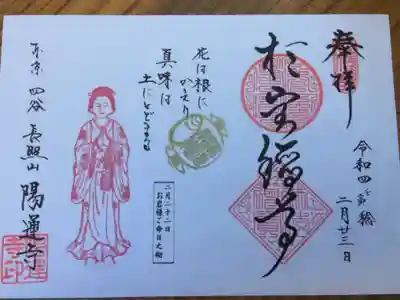 奉拝
令和四壬寅稔
二月廿二日
於岩稲荷
花は根に
かえり
真味は
土にとどまる
二月二十二日
お岩様ご命日之御
東京 四谷 長照山 陽運寺